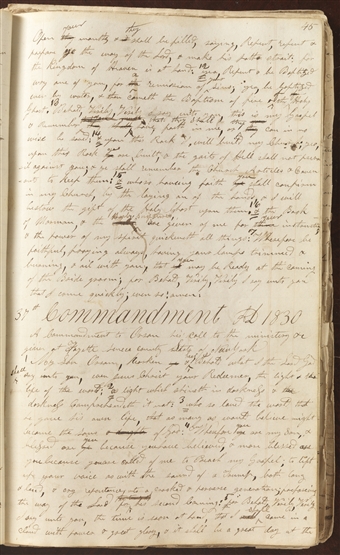 45
your thy
Open ye mouths & they shall be filled saying, Repent, repent &
prepare ye the way of the Lord, & make his path strait: for
the Kingdom of Heaven is at hand; 12 yea, Repent & be Baptised
evry one of you, for the remission of Sins; yea be baptised
even by water, & then cometh the Baptism of fire & the Holy
Ghost. 13 Behold, Verily, Verily I say unto you this is my Gospel
& remember that they shall have faith in me or they can in no
wise be saved; 14 & upon this Rock I will build my Church; yea,
upon this Rock ye are built, & the gates of Hell shall not prevail
against you; & ye shall remember the Church Articles & Covenants
to keep them; 15 & whoso having faith ye shall confirm
in my Church, by the laying on of the hands, & I will
bestow the gift of the Holy Ghost upon them; 16 & the Book
of Mormon, & the Holy Scriptures, are given of me for your instruction
& the power of my spirit quickeneth all things: 17 Wherefore be
faithful, praying always, having your lamps trimmed &
burning, & oil with you, that you may be Ready at the coming
of the Bride groom; for Behold, Verily, Verily I say unto you
that I come quickly; even so: amen.
37th Commandment AD 1830
A Commandment to Orson his call to the ministry &c
given at Fayette Seneca County State of New York
My son Orson, hearken & hear & behold what I the Lord God
shall say unto you, even Jesus Christ your Redeemer, the light & the
life of the world; 2 a light which shineth in darkness & the
darkness comprehendeth it not; 3 who so loved the world that
he gave his own life, that as many as would believe might
become the sons of God; 4 Wherefore you are my son, &
blessed are you because you have believed, & more blessed are
you because you are called of me to Preach my Gospel, to lift
up your voice as with the sound of a trump, both long
& loud, & cry repentance unto a crooked & perverse generation, preparing
the way of the Lord for his second coming; 5 for Behold Verily Verily
I say unto you, the time is soon at hand, that I shall come in a
cloud with power & great glory, & it shall be a great day at the